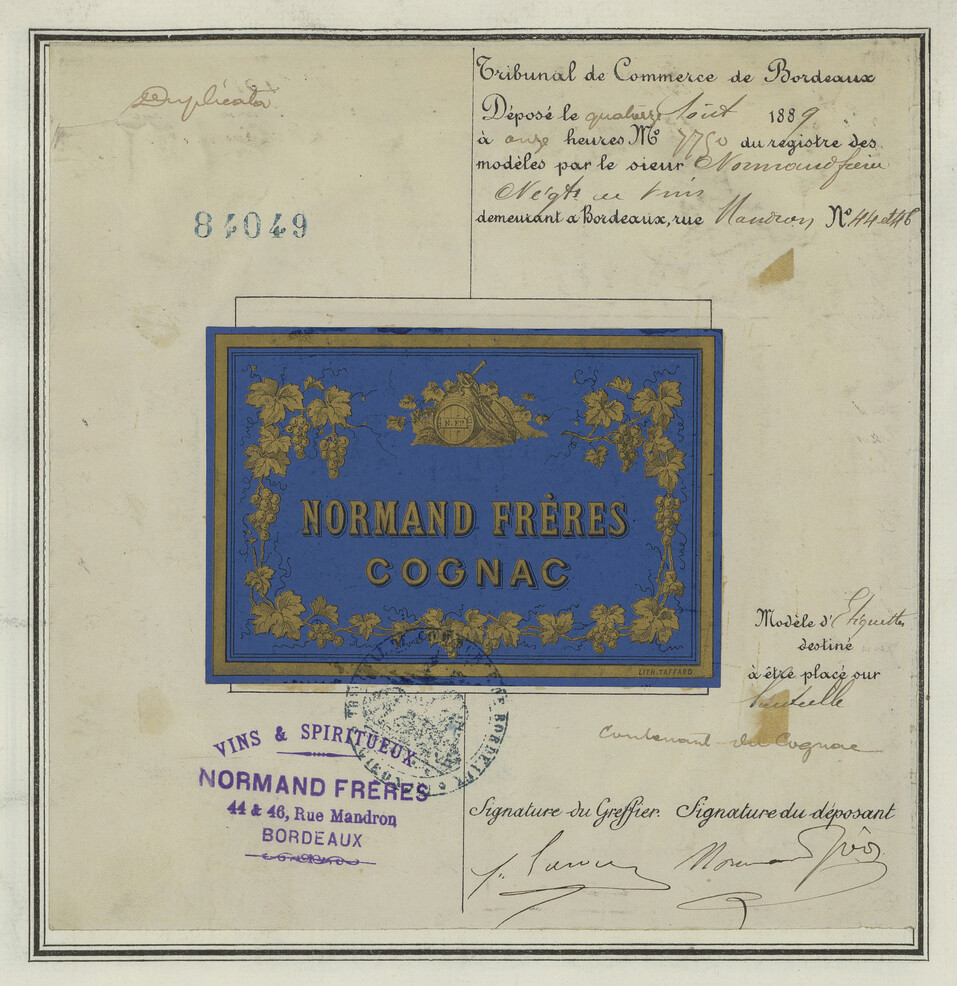 Duplicata
84049
Tribunal de Commerce de Bordeaux
Déposé le quatorze Août 1889
à onze heures No 7750 du registre des
modèles par le sieur Normand frères
Négts en vins
demeurant a Bordeaux, rue Mandron No. 44 et 46
N. Fres
NORMAND FRÈRES
COGNAC
LITH. TAFFARD
Modèle d'Etiquettes
destiné
à être placé sur
bouteille
contenant du Cognac
TRIBUNAL DE COMMERCE DE BORDEAUX
VINS & SPIRITUEUX
NORMAND FRÈRES
44 & 46, Rue Mandron
BORDEAUX
Signature du Greffier. Signature du déposant
Normand frères